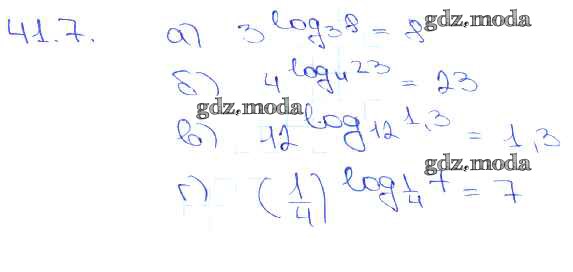 41.7. а) 3^log₃8 = 8 gdz.moda
б) 4^log₄23 = 23
gdz.moda
в) 12^log₁₂1,3 = 1,3
gdz.moda
г) (1/4)^log_1/4 7 = 7